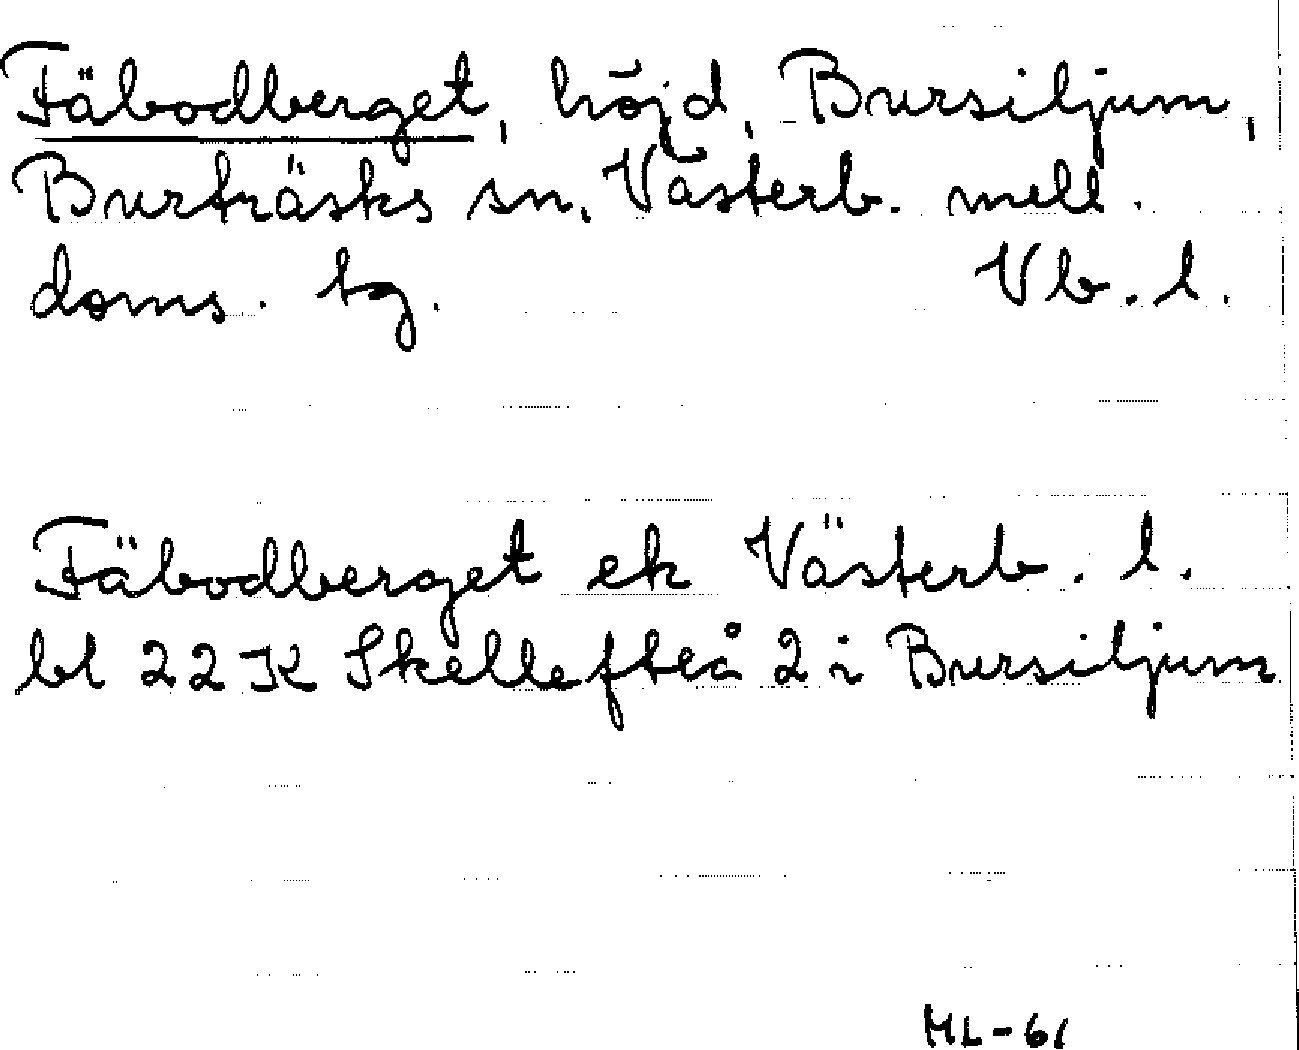 Fäbodberget, höjd, Bursiljum,
Burträsks sn, Västerb. mell.
doms. tg. Vb. l.
Fäbodberget ek Västerb. l.
bl 22 K Skellefteå 2 i Bursiljum
ML-61